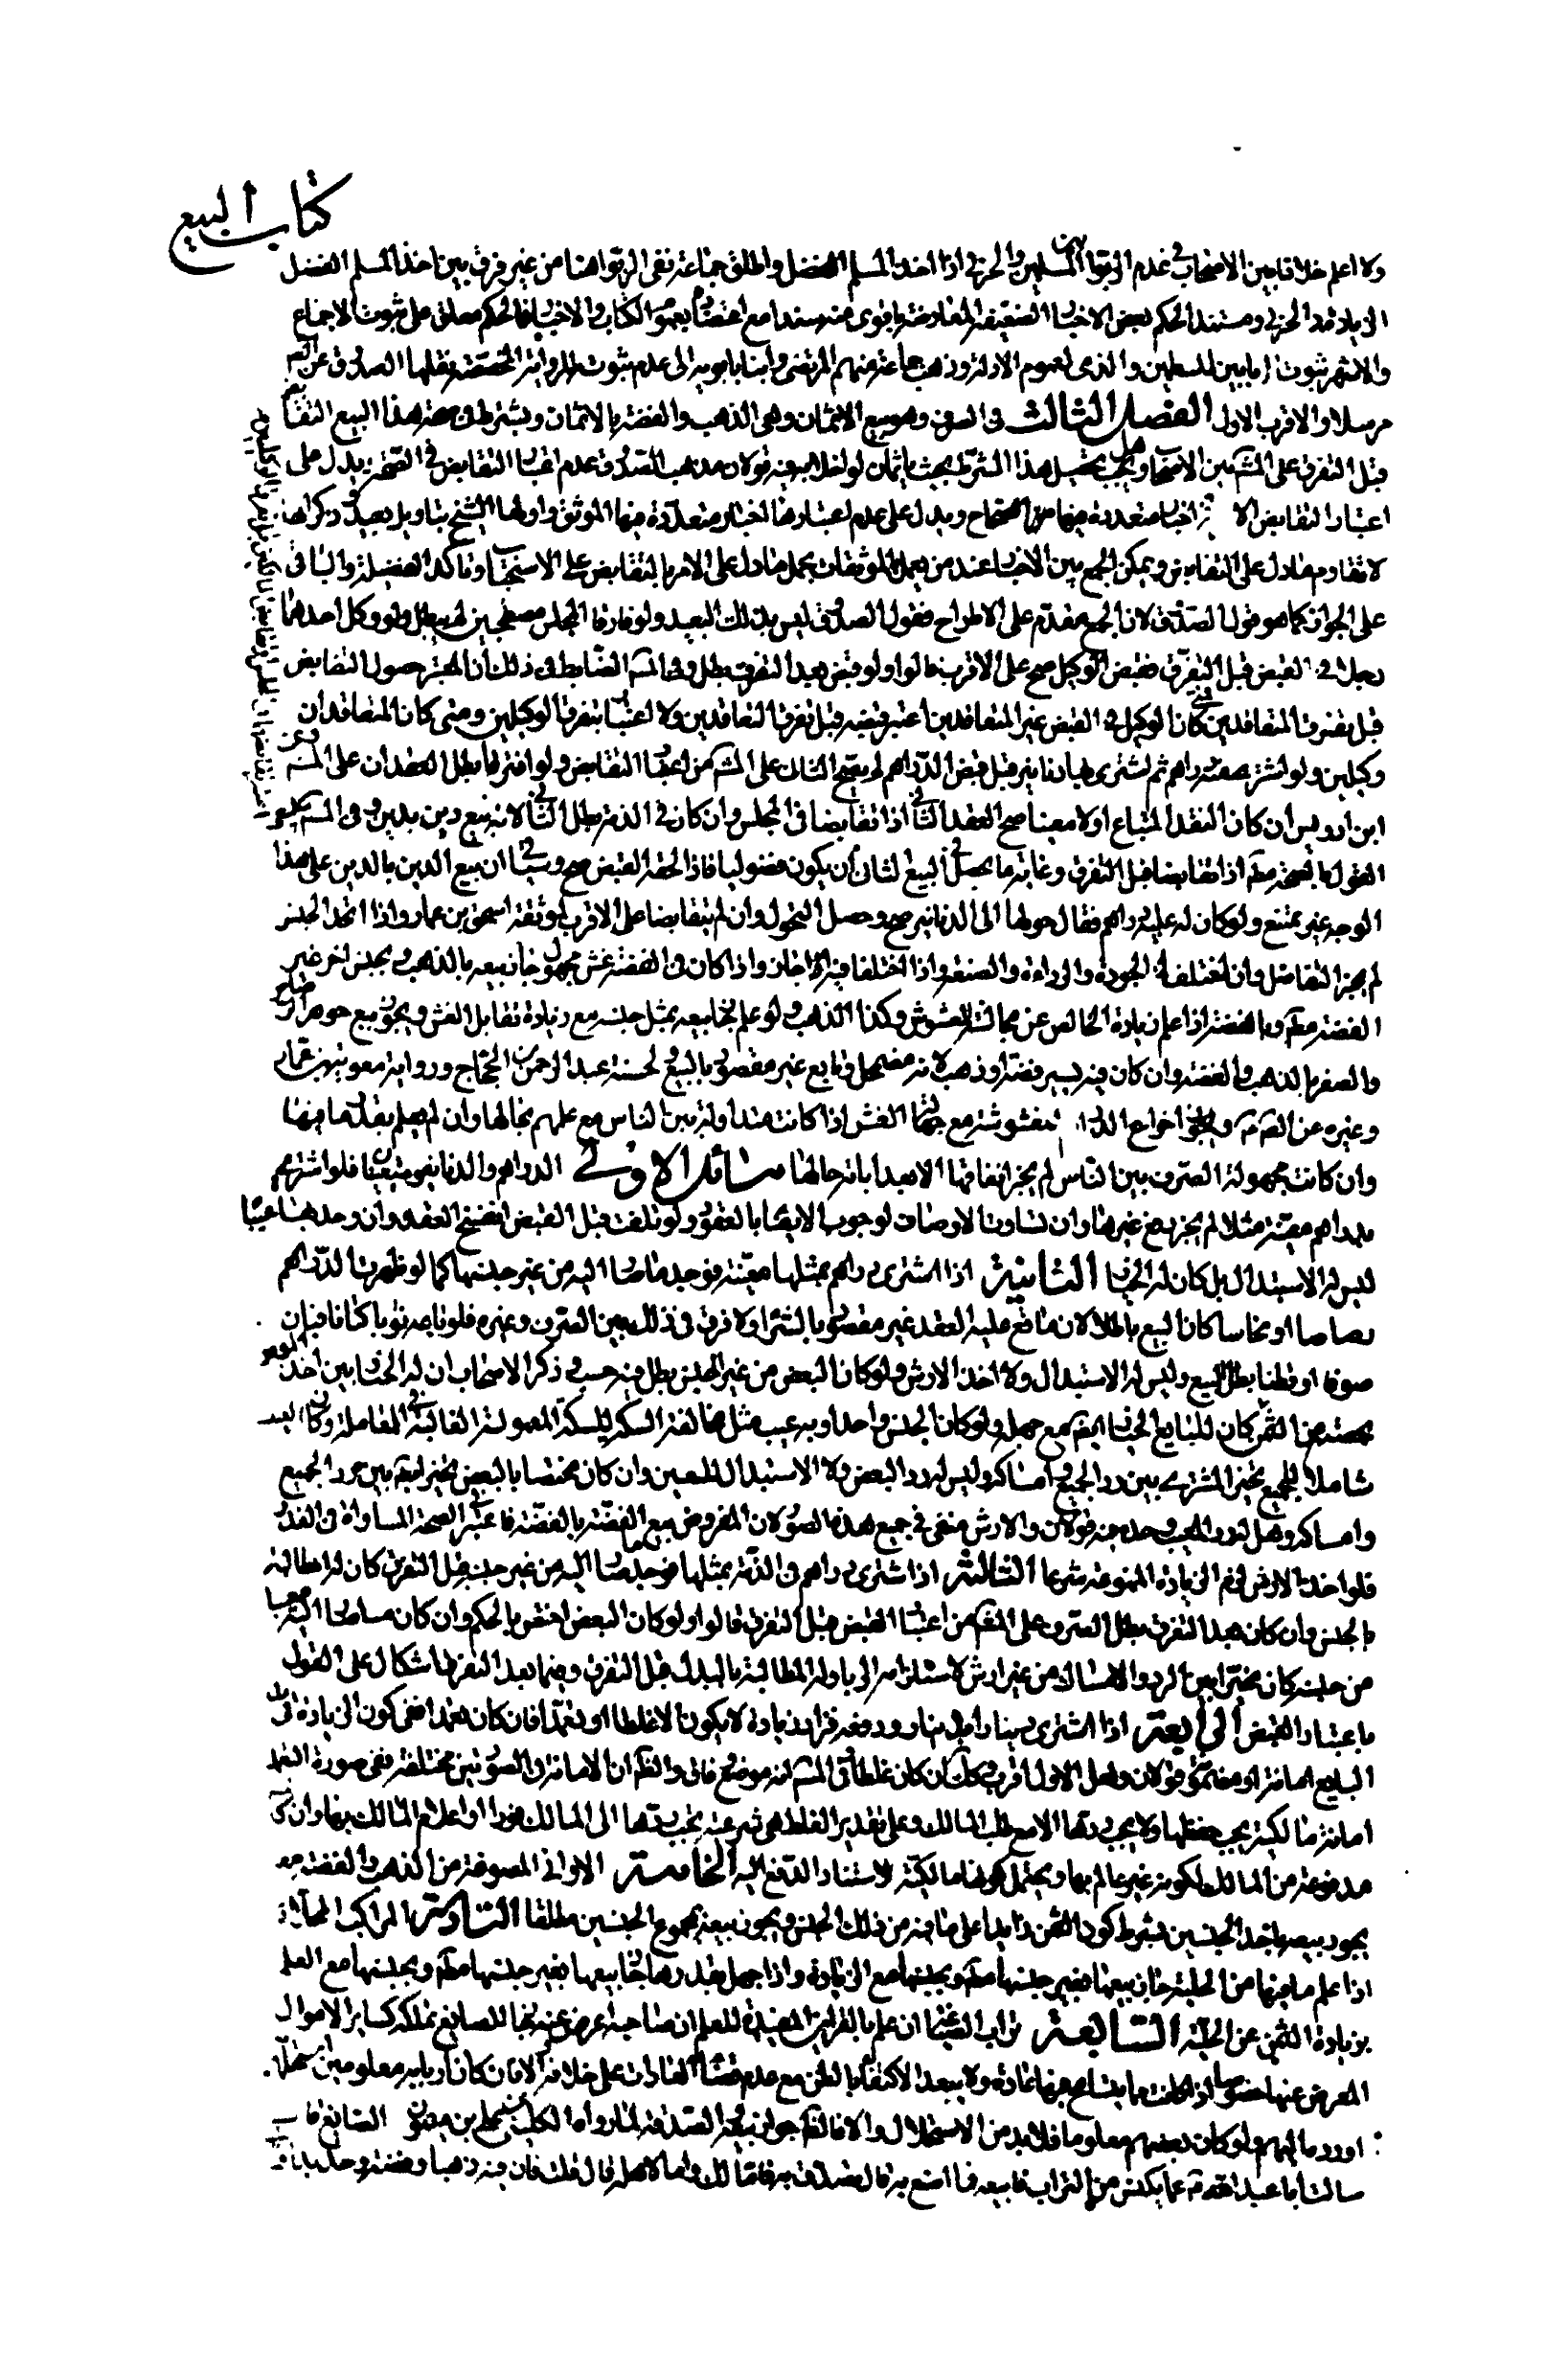 كتاب البيع
ولا اعلم خلافا بين الاصحاب في عدم الربوا بين المسلمين والحربي اذا اخذ المسلم الفضل واطلق جماعة نفي الربوا هنا من غير فرق بين اخذ المسلم الفضل
الزيادة والحربي ومستند الحكم بعض الاخبار الضعيفة المعارضة باقوى منه سندا مع اعتضاده بعموم الكتاب والاخبار فالحكم معلق على ثبوت الاجماع
والاشهر ثبوت الربا بين المسلمين والذمي لعموم الادلة وذهب جماعة منهم المرتضى وابنا بابويه الى عدم ثبوته للرواية المخصصة نقلها الصدوق عن
مرسلا والاقرب الاول الفصل الثالث في الصرف وهو بيع الاثمان وهي الذهب والفضة بالاثمان ويشترط في صحة هذا البيع التقابض
قبل التفرق على المشهور بين الاصحاب وهل يجب تحصيل هذا الشرط بحيث ياثمان لو اخلا به فيه قولان ومذهب الصدوق عدم اعتبار التقابض في الصحة يدل على
اعتبار التقابض اخبار متعددة منها من الصحاح ويدل على عدم اعتباره اخبار متعددة منها الموثق واولها الشيخ بتاويل بعيد وذكر انها
لا تقاوم ما دل على التقابض ويمكن الجمع بين الاخبار عند من يعمل بالموثقات بحمل ما دل على الامر بالتقابض على الاستحباب وتاكد الفضيلة والباقي
على الجواز كما هو قول الصدوق لان الجمع مقدم على الاطراح فقول الصدوق ليس بذلك البعيد ولو فارقا المجلس مصطحبين لم يبطل ولو وكل احدهما
رجلا في القبض قبل التفرق فقبض الوكيل صح على الاقرب قالوا ولو قبض بعد التفرق بطل وفي الضابط في ذلك ان المعتبر حصول التقابض
قبل تفرق المتعاقدين فمتى كان الوكيل في القبض غير المتعاقدين اعتبر قبضه قبل تفرق المتعاقدين ولا اعتبار بتفرق الوكيلين ومتى كان المتعاقدان
وكيلين ولو اشترى منه دراهم ثم اشترى بها دنانير قبل قبض الدراهم لم يصح الثاني على المشهور من اعتبار التقابض ولو افترقا بطل العقدان على
ابن ادريس ان كان النقد المبتاع اولا معينا صح العقد الثاني اذا تقابضا في المجلس وان كان في الذمة بطل الثاني لانه بيع دين بدين وفي
القول بالصحة اذا تقابضا قبل التفرق وغاية ما يحصل في البيع الثاني ان يكون فضوليا فاذا لحقه القبض صح وسيأتي ان بيع الدين بالدين على هذا
الوجه غير ممتنع ولو كان له عليه دراهم فقال حولها الى الدنانير صح وحصل التحول وان لم يتقابضا على الاقرب لموثقة اسحق بن عمار واذا اتحد الجنس
لم يجز التفاضل وان اختلفا في الجودة والرداءة والصنعة واذا اختلفا فيه جاز واذا كان في الفضة غش مجهول جاز بيعه بالذهب وبجنس اخر غير
الفضة وبالفضة اذا علم زيادة الخالص عن مجانسه المغشوش وكذا الذهب ولو علم جاز بيعه بمثل جنسه مع زيادة تقابل الغش ويجوز بيع جوهر الرصاص
والصفر بالذهب والفضة وان كان فيه يسير فضة او ذهب لانه مضمحل وتابع غير مقصود بالبيع لحسنة عبد الرحمن بن الحجاج ورواية معوية بن عمار
وغيره عن الصادق ويجوز اخراج الدراهم المغشوشة مع جهالة الغش اذا كانت متداولة بين الناس مع علمهم بحالها وان لم يعلم بقدر ما فيها
وان كانت مجهولة الصرف بين الناس لم يجز انفاقها الا بعد ابانة حالها مسائل الاولى الدراهم والدنانير متعينان فلو اشترى
بدراهم معينة مثلا لم يجز دفع غيرها وان تساوت الاوصاف لوجوب الايفاء بالعقود ولو تلفت قبل القبض انفسخ العقد وان وجد بها عيبا
ليس له الاستبدال بل كان له الخيار الثانية اذا اشترى دراهم بمثلها معينة فوجد ما صار اليه من غير جنسها كما لو ظهرت الدراهم
رصاصا او نحاسا كان البيع باطلا لان ما وقع عليه العقد غير مقصود بالشراء ولا فرق في ذلك بين الصرف وغيره فلو باعه ثوبا كتانا فبان
صوفا او قطنا بطل البيع وليس له الاستبدال ولا اخذ الارش ولو كان البعض من غير الجنس بطل فيه حسب وذكر الاصحاب ان له الخيار بين اخذ
بحصته من الثمن وكان للبايع الخيار ايضا مع جهله ولو كان الجنس واحدا وبه عيب مثل مخالفة السكة للسكة المعمولة الغالبة في المعاملة وكان العيب
شاملا للجميع تخير المشتري بين رد الجميع وامساكه وليس له رد البعض ولا الاستبدال للمعين وان كان مختصا بالبعض تخير ايضا بين رد الجميع
وامساكه وهل له رد المعيب وحده فيه قولان والارش منفي في جميع هذه الصور لان المفروض بيع الفضة بالفضة فاعتبر في الصحة المساواة في القدر
فلو اخذ الارش لزم الزيادة الممنوعة شرعا الثالثة اذا اشترى دراهم في الذمة بمثلها فوجد ما صار اليه من غير جنسه قبل التفرق كان له المطالبة
بالجنس وان كان بعد التفرق بطل الصرف على المشهور من اعتبار القبض قبل التفرق قالوا ولو كان البعض اختص بالحكم وان كان ما صار اليه معيبا
من جنسه كان مخيرا بين الرد والامساك من غير ارش لاستلزامه الربا وله المطالبة بالبدل قبل التفرق وفيما بعد التفرق اشكال على القول
باعتبار القبض الرابعة اذا اشترى دينارا بدينار ودفعه فزاد زيادة لا يكون الا غلطا او تعمدا فان كان تعمدا ففي كون الزيادة في
البايع امانة او مضمونة قولان ولعل الاول اقرب وكذا ان كان غلطا وفي المشهور انه موضع فاق والظاهر ان الامانة في الصورتين مختلفة ففي صورة التعمد
امانة مالكية يجب حفظها ولا يجب ردها الا مع طلب المالك وعلى تقدير الغلط هي شرعية يجب ردها الى المالك فورا او اعلام المالك بها وان كانت
مدفوعة من المالك لكونه غير عالم بها ويحتمل كونها مالكية لاستناد الدفع اليه الخامسة الاواني المصوغة من الذهب والفضة معا
يجوز بيعها باحد الجنسين بشرط كون الثمن زايدا على ما فيه من ذلك الجنس ويجوز بيعه بمجموع الجنسين مطلقا السادسة المراكب المحلاة
اذا علم ما فيها من الحلية جاز بيعها بغير جنسها وبجنسها مع الزيادة واذا جهل بقدرها جاز بيعها بغير جنسها وبجنسها مع العلم
بزيادة الثمن عن الحلية السابعة تراب الصياغة ان علم بالقراين المفيدة للعلم ان صاحبه اعرض عنه جاز للصايغ تملكه كساير الاموال
المعرض عنها خصوصا اذا كانت مما يتسامح فيها عادة ولا يبعد الاكتفاء بالظن مع عدم قضاء العادات على خلافه والا فان كان اربابه معلومين استحلهم
او رد مالهم ولو كان بعضهم معلوما فلابد من الاستحلال والا فالظاهر جواز بيعه والصدقة لما رواه الكليني عن علي بن ميمون الصائغ قال
سالت ابا عبد الله عما يكنس من التراب فابيعه فما اصنع به قال تصدق به فاما لك واما لاهله قال قلت فان فيه ذهبا وفضة وحديدا